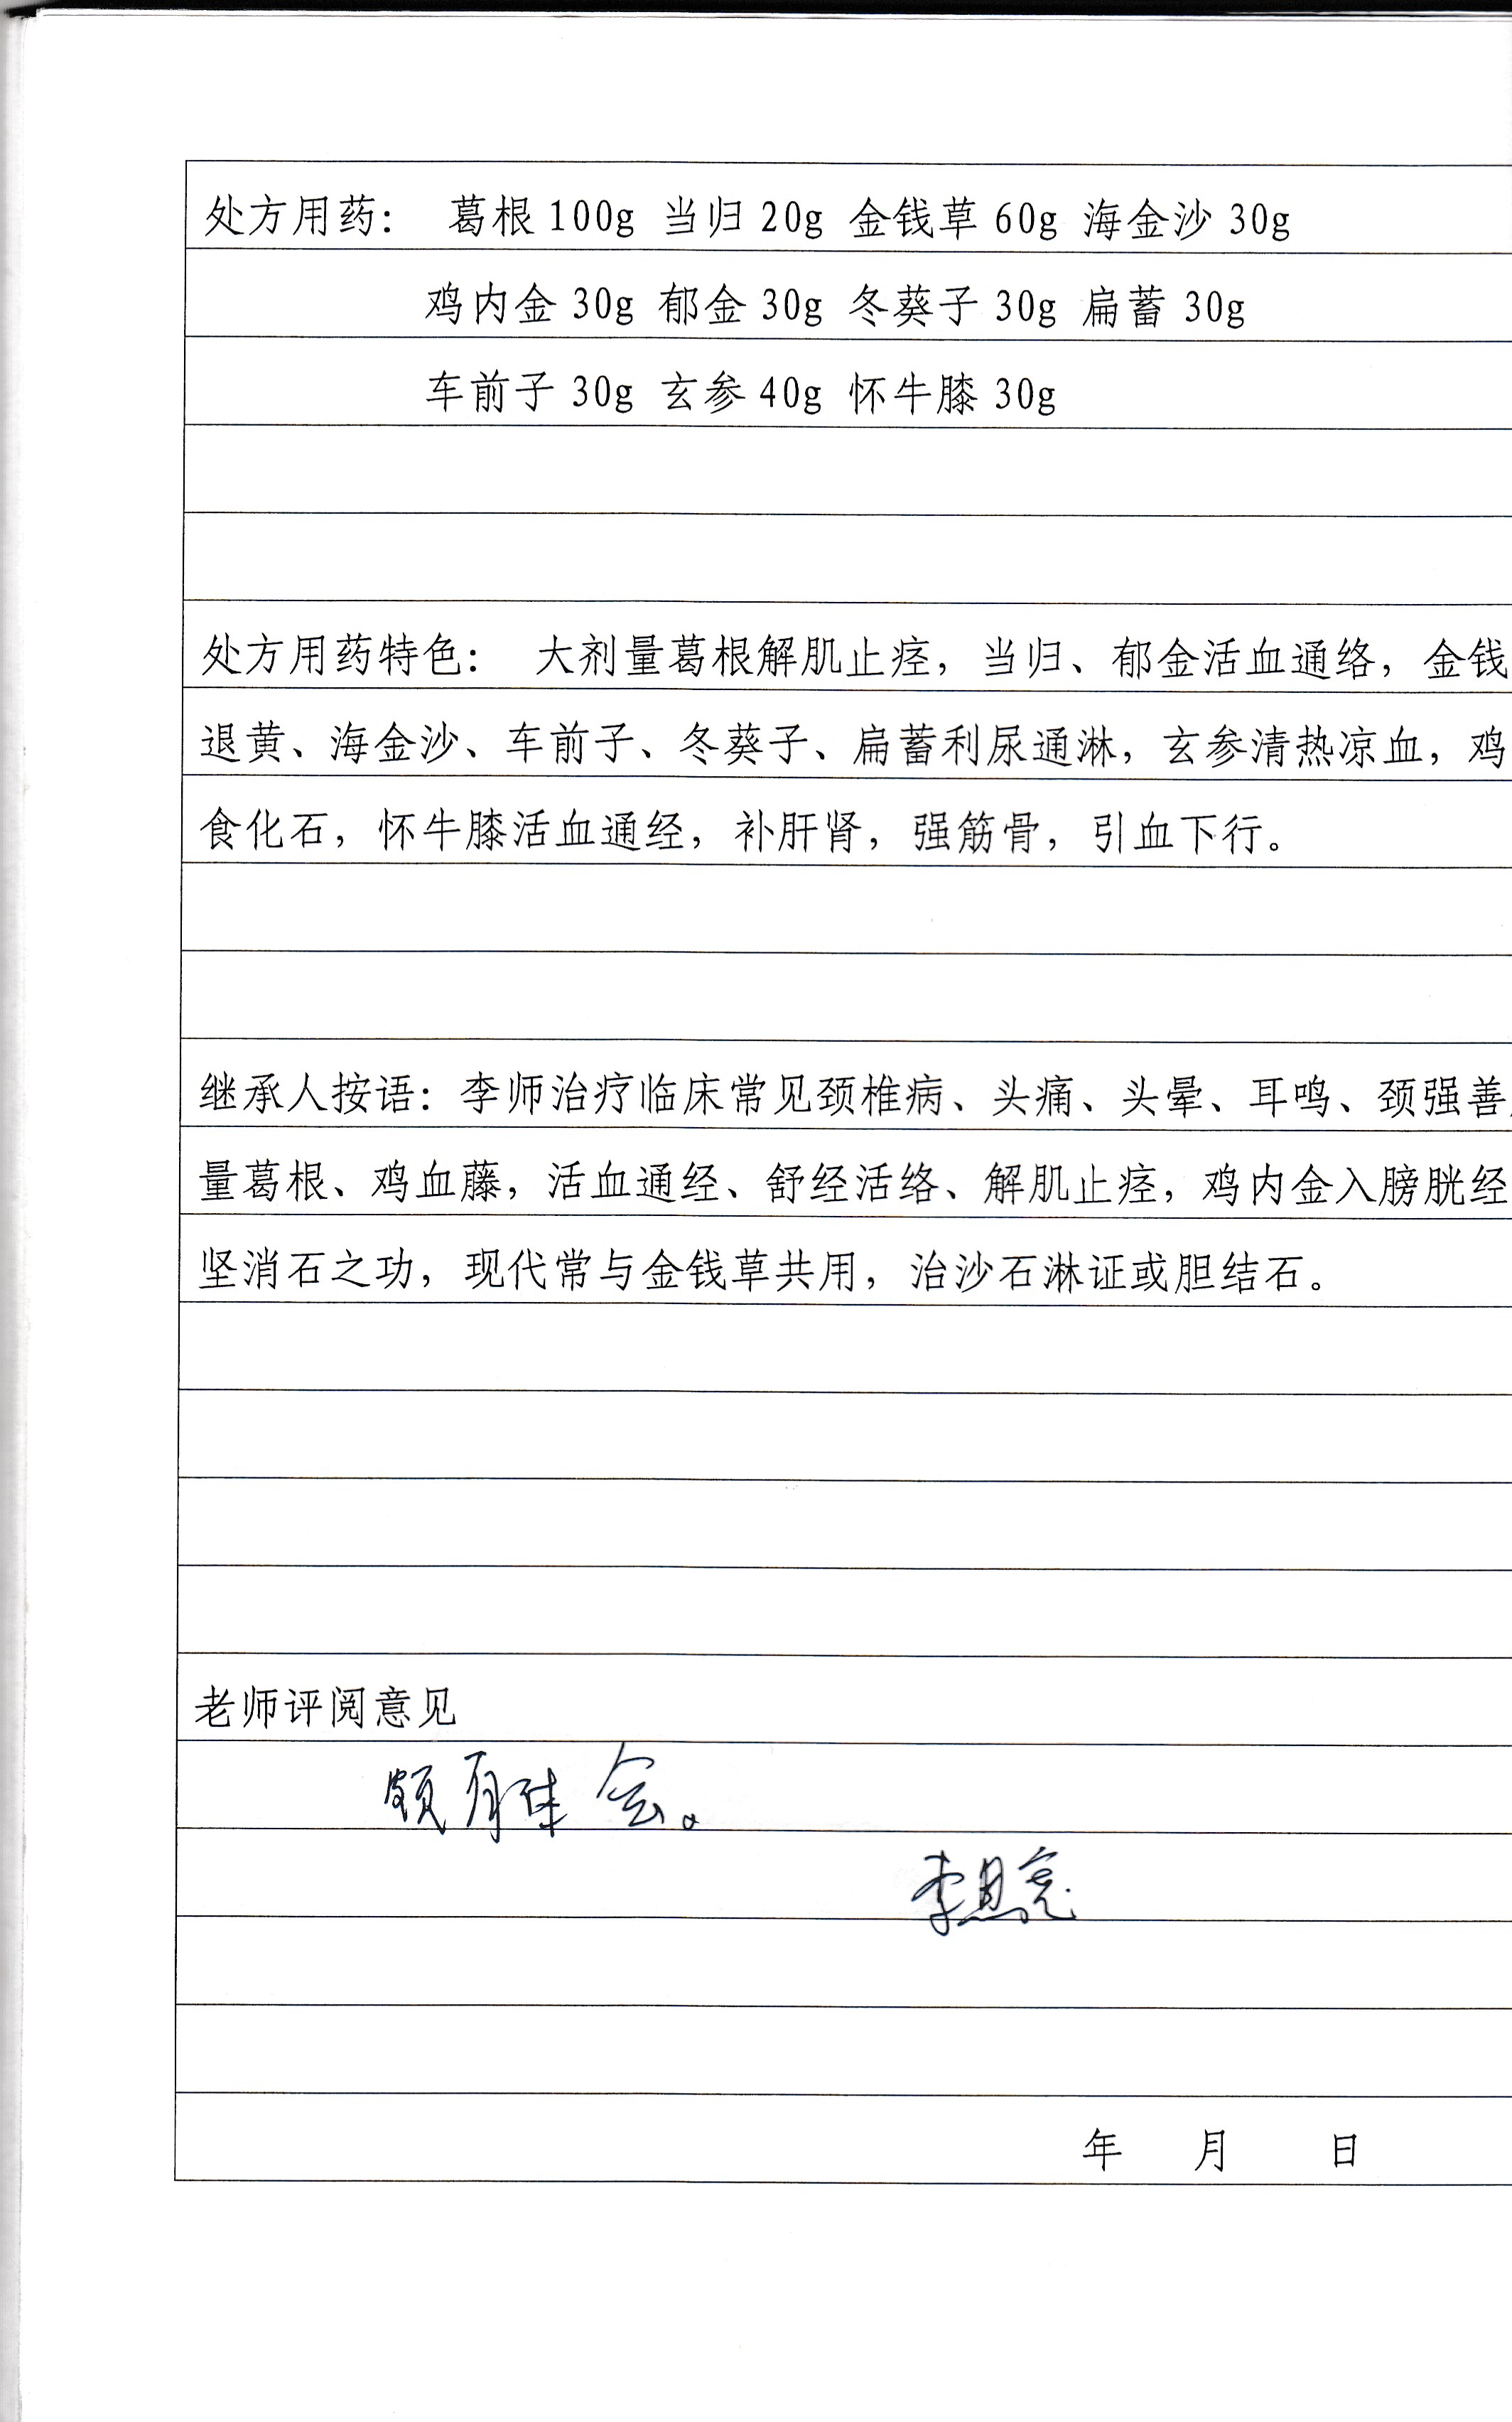 处方用药： 葛根 100g 当归 20g 金钱草 60g 海金沙 30g
鸡内金 30g 郁金 30g 冬葵子 30g 扁蓄 30g
车前子 30g 玄参 40g 怀牛膝 30g
处方用药特色： 大剂量葛根解肌止痉，当归、郁金活血通络，金钱
退黄、海金沙、车前子、冬葵子、扁蓄利尿通淋，玄参清热凉血，鸡
食化石，怀牛膝活血通经，补肝肾，强筋骨，引血下行。
继承人按语：李师治疗临床常见颈椎病、头痛、头晕、耳鸣、颈强善
量葛根、鸡血藤，活血通经、舒经活络、解肌止痉，鸡内金入膀胱经
坚消石之功，现代常与金钱草共用，治沙石淋证或胆结石。
老师评阅意见
颇有体会。
年 月 日